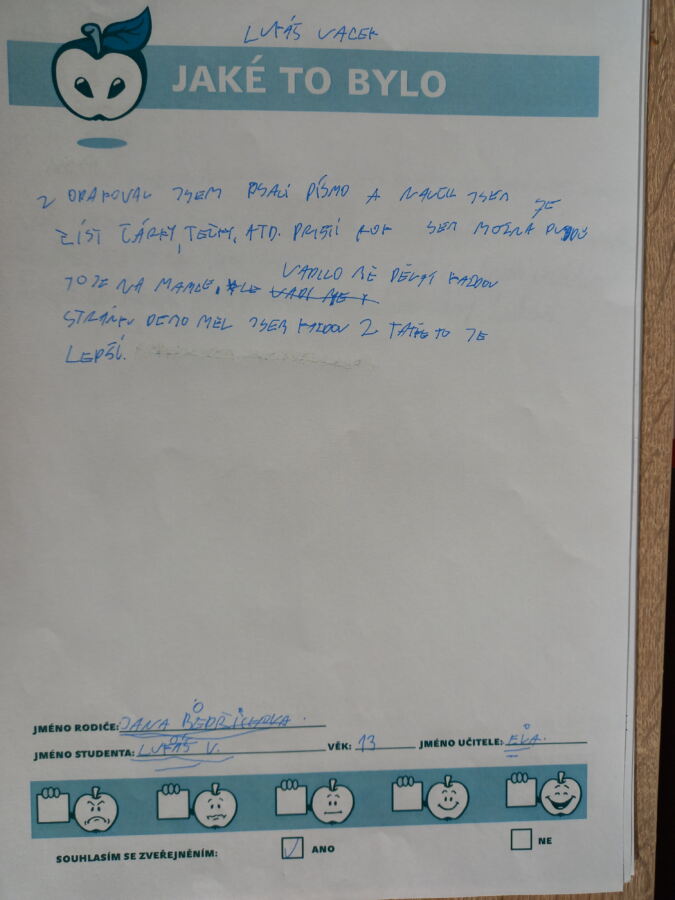 LUKÁŠ VACEK
JAKÉ TO BYLO
ZOPAKOVAL JSEM PSACÍ PÍSMO A NAUČIL JSEM SE
ČÍST ČÁRKY, TEČKY, ATD. PŘIŠTÍ ROK SEM MOŽNÁ PUJDU
TOJE NA MAMCE. VADILO MĚ DĚLAT KAŽDOU
STRÁNKU DEMO MĚL JSEM KAŽDOU 2 TAKŽE TO JE
LEPŠÍ.
JMÉNO RODIČE: JANA BEDŘICHOVA
JMÉNO STUDENTA: LUKÁŠ V. VĚK: 13 JMÉNO UČITELE: EVA.
SOUHLASÍM SE ZVEŘEJNĚNÍM: ANO NE